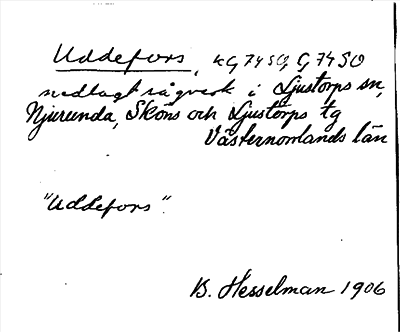 Uddefors, kG 74 SO, G 74 SO
nedlagt sågverk i Ljustorps sn,
Njurunda, Sköns och Ljustorps tg
Västernorrlands län
"Uddefors".
B. Hesselman 1906